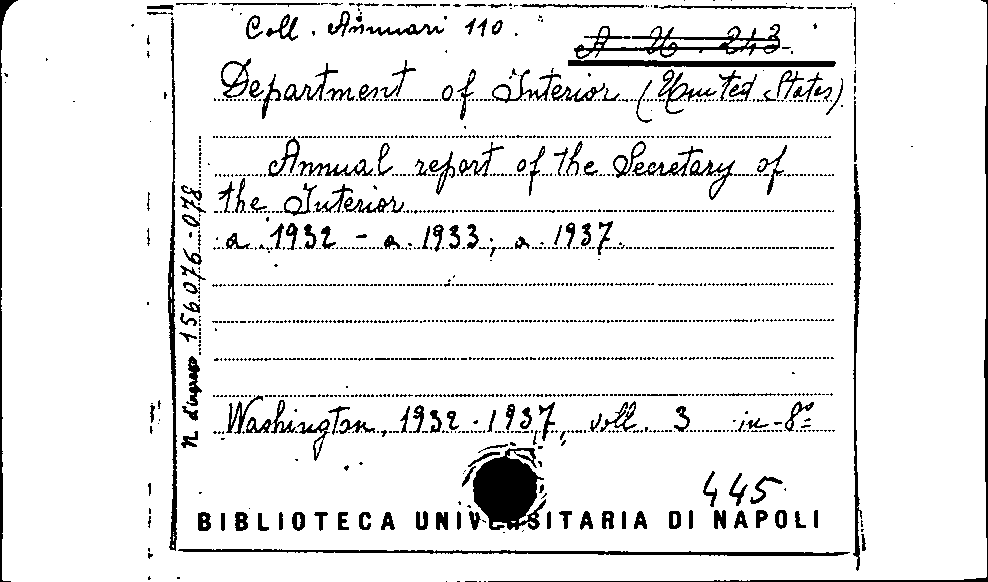 Coll. Annuari 110.
A U. 243
Department of Interior (United States)
Annual report of the Secretary of
the Interior
a. 1932 - a. 1933; a. 1937.
N. d'ingresso 156076-078
Washington, 1932-1937, voll. 3 in-8º
445
BIBLIOTECA UNIVERSITARIA DI NAPOLI